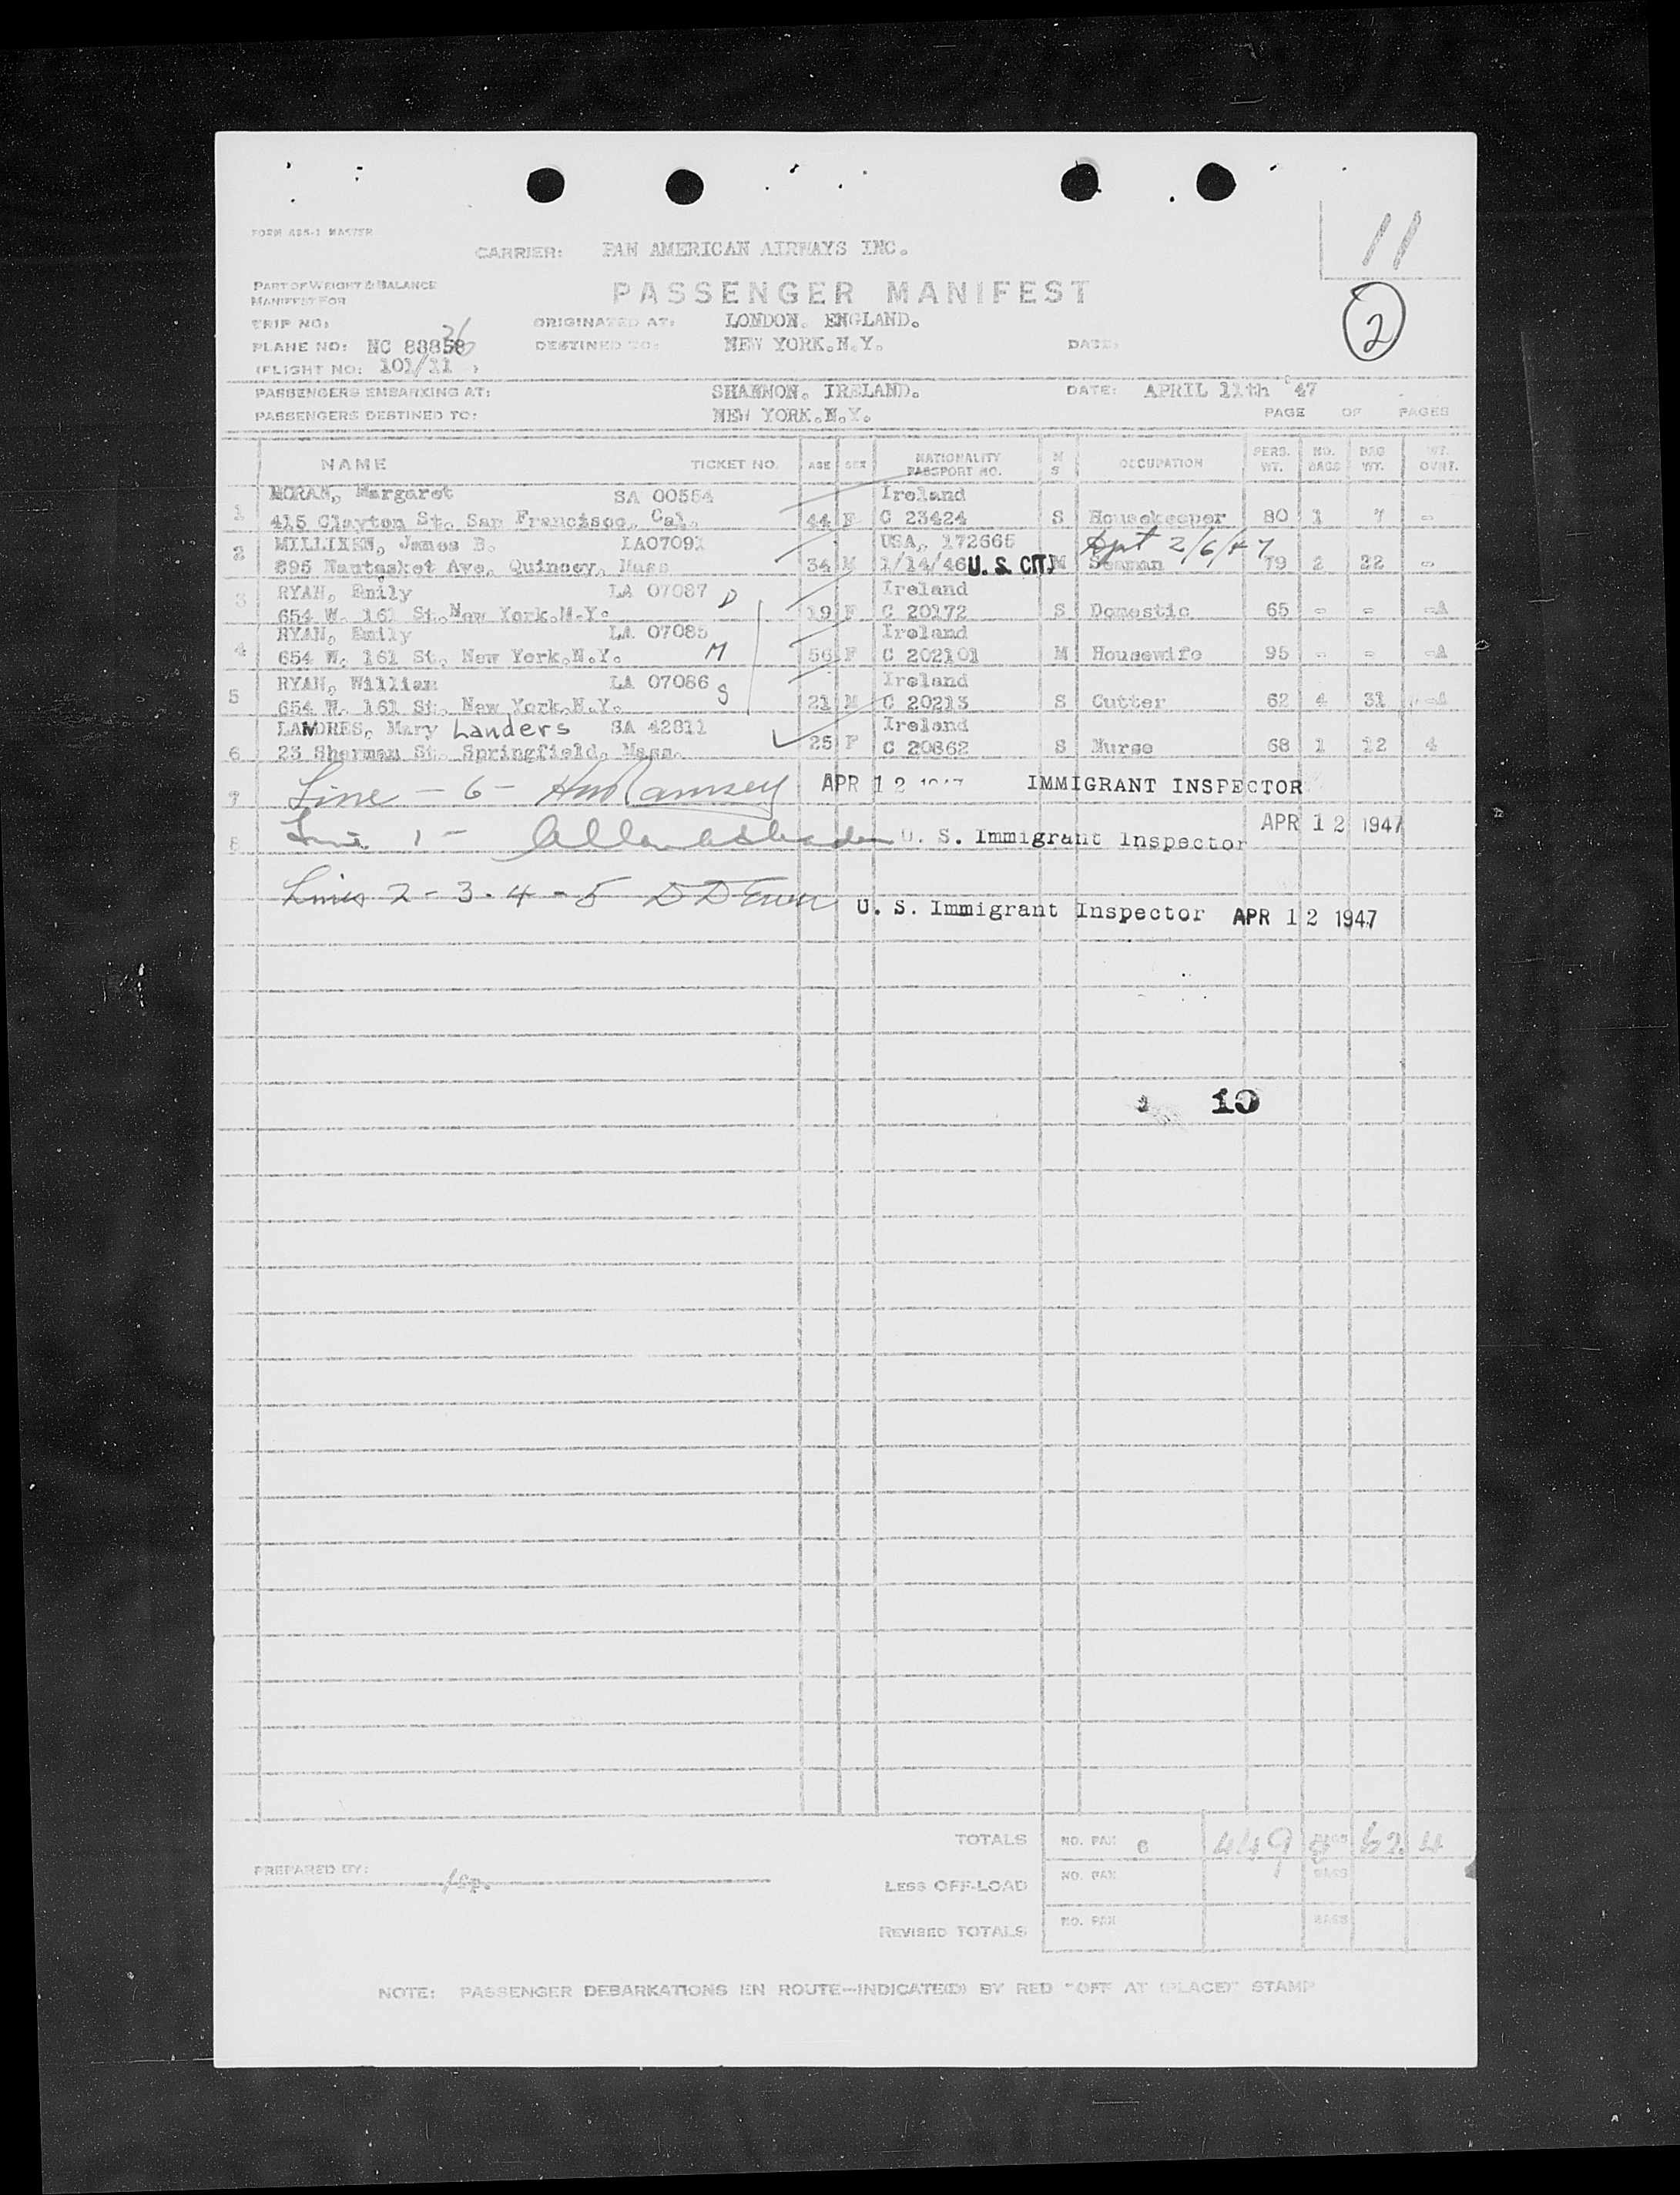 11
CARRIER: PAN AMERICAN AIRWAYS INC.
PART OF WEIGHT & BALANCE
MANIFEST FOR
PASSENGER MANIFEST
2
TRIP NO:
ORIGINATED AT: LONDON. ENGLAND.
PLANE NO: NC 88858
DESTINED TO: NEW YORK.N.Y.
DATE:
(FLIGHT NO: 101/11 )
PASSENGERS EMBARKING AT: SHANNON. IRELAND. DATE: APRIL 11th '47
PASSENGERS DESTINED TO: NEW YORK.N.Y. PAGE OF PAGES
NAME TICKET NO. AGE SEX NATIONALITY PASSPORT NO. M S OCCUPATION PERS. WT. NO. BAGS BAG WT. WT. OVNT.
1 MORAN, Margaret SA 00554 Ireland
415 Clayton St. San Francisco, Cal. 44 F C 23424 S Housekeeper 80 1 7 -
2 MILLIKEN, James B. LA07091 USA. 172665 dpt 2/6/47
895 Nantasket Ave. Quincey, Mass 34 M 1/14/46 U. S. CIT. M Seaman 79 2 22 -
3 RYAN, Emily LA 07087 D Ireland
654 W. 161 St. New York.N.Y. 19 F C 20172 S Domestic 65 - - -A
4 RYAN, Emily LA 07085 Ireland
654 W. 161 St. New York.N.Y. M 56 F C 202101 M Housewife 95 - - -A
5 RYAN, William LA 07086 S Ireland
654 W. 161 St. New York.N.Y. 21 M C 20213 S Cutter 62 4 31 -A
LANDRES, Mary Landers SA 42811 Ireland
6 23 Sherman St. Springfield, Mass. 25 F C 20862 S Nurse 68 1 12 4
7 Line - 6 - Ramsey APR 12 1947 IMMIGRANT INSPECTOR
8 Line 1 - U. S. Immigrant Inspector APR 12 1947
Lines 2-3-4-5 U. S. Immigrant Inspector APR 12 1947
10
TOTALS NO. PAX 6 449 8 BAGS 62 4
PREPARED BY:
LESS OFF-LOAD NO. PAX BAGS
REVISED TOTALS NO. PAX BAGS
NOTE: PASSENGER DEBARKATIONS EN ROUTE—INDICATE(D) BY RED "OFF AT (PLACE)" STAMP